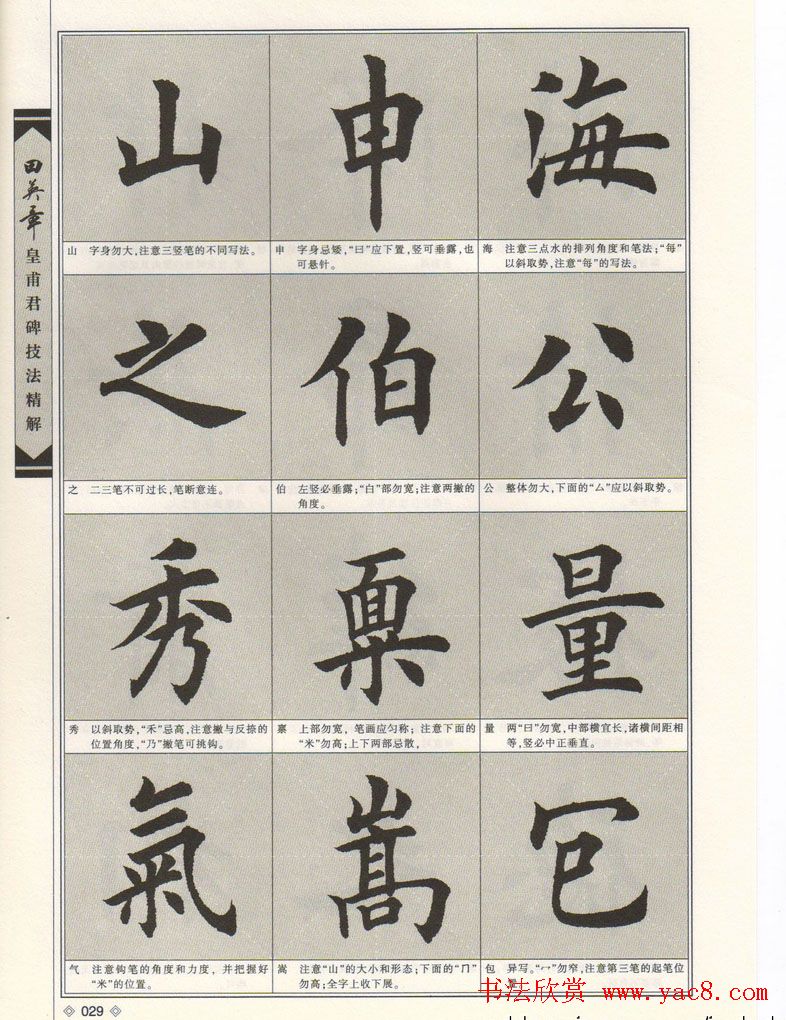 田英章
皇甫君碑技法精解
山 申 海
山 字身勿大,注意三竖笔的不同写法。
申 字身忌矮,“曰”应下置,竖可垂露,也
可悬针。
海 注意三点水的排列角度和笔法;“每”
以斜取势,注意“每”的写法。
之 伯 公
之 二三笔不可过长,笔断意连。
伯 左竖必垂露;“白”部勿宽;注意两撇的
角度。
公 整体勿大,下面的“厶”应以斜取势。
秀 禀 量
秀 以斜取势,“禾”忌高,注意撇与反捺的
位置角度,“乃”撇笔可挑钩。
禀 上部勿宽,笔画应匀称;注意下面的
“米”勿高;上下两部忌散,
量 两“曰”勿宽,中部横宜长,诸横间距相
等,竖必中正垂直。
氣 嵩 包
气 注意钩笔的角度和力度,并把握好
“米”的位置。
嵩 注意“山”的大小和形态;下面的“冂”
勿高;全字上收下展。
包 异写。“冖”勿窄,注意第三笔的起笔位
书法欣赏 www.yac8.com
029